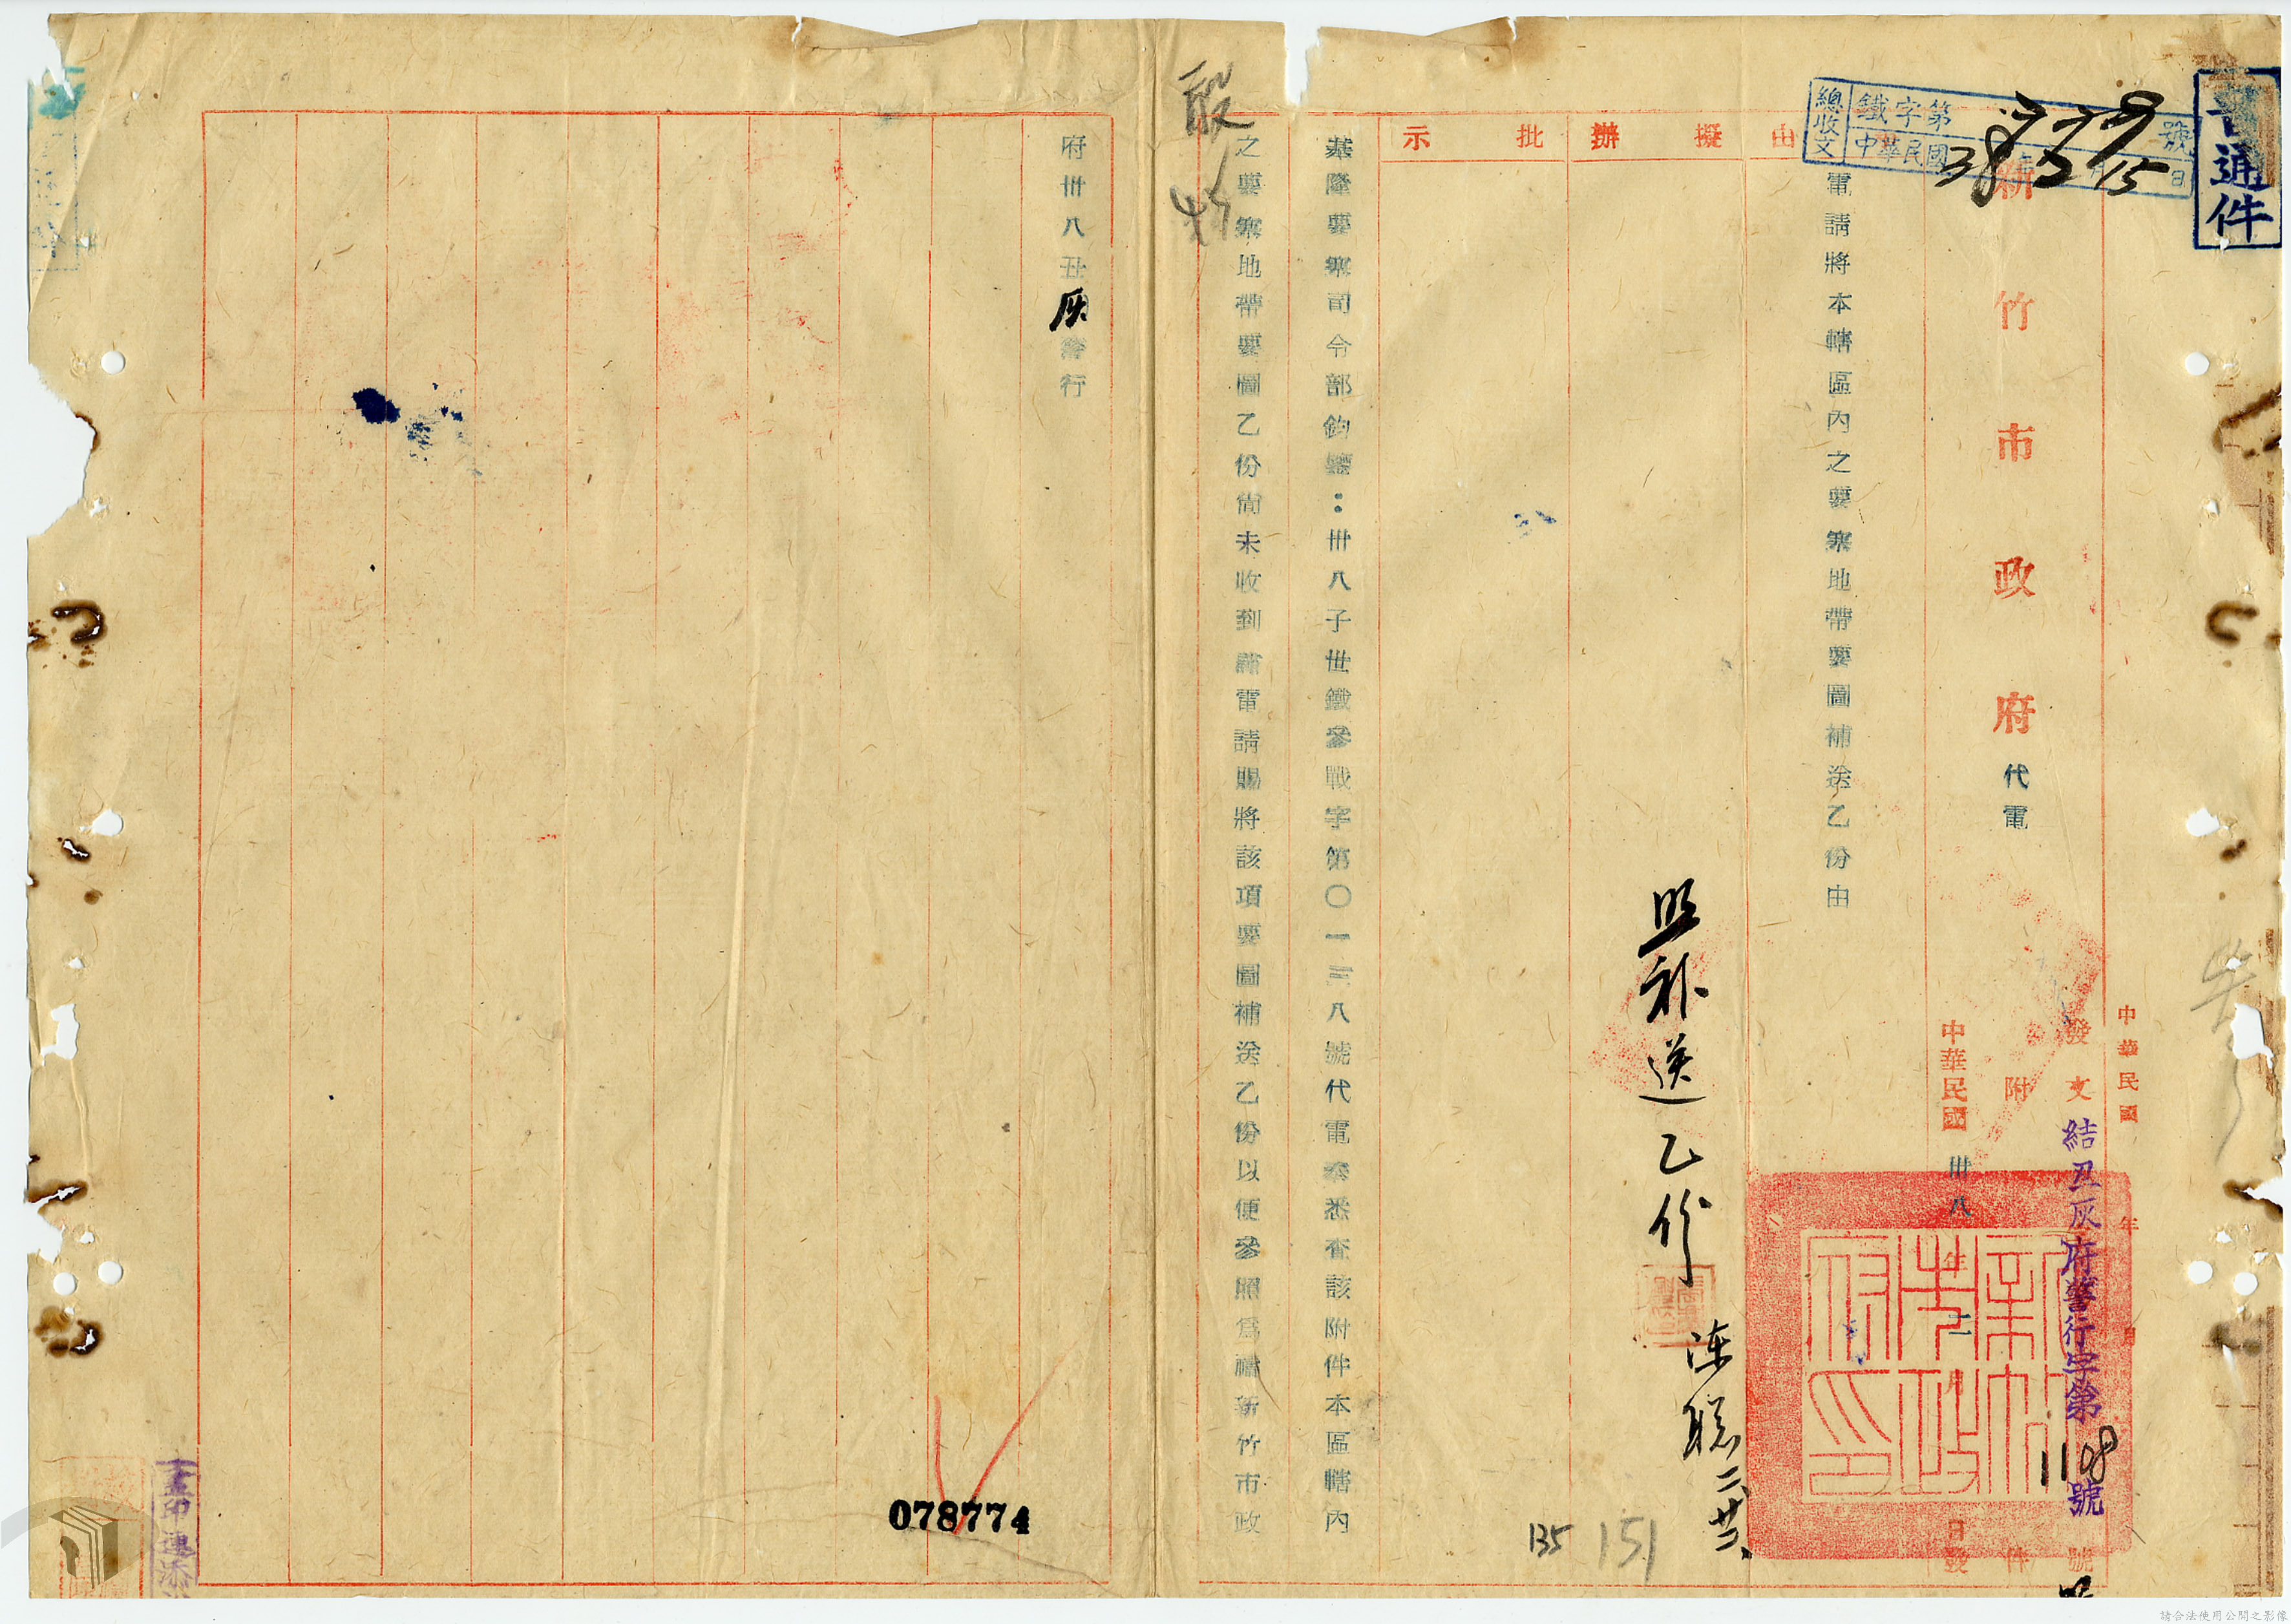 普通件
總收文
鐵字第339號
中華民國38 2 15日
新竹市政府代電
中華民國 年 月
發文 結丑灰府警行字第1108號 號
附件
中華民國卅八年二月 日發
新竹市政府印
由
電請將本轄區內之要塞地帶要圖補送乙份由
擬辦
批示
照補送乙份
陳聪 二、廿二、
135
151
基隆要塞司令部鈞鑒:卅八子世鐵參戰字第〇一三八號代電奉悉查該附件本區轄內
之要塞地帶要圖乙份尙未收到謹電請賜將該項要圖補送乙份以便參照爲禱新竹市政
府卅八丑灰警行
078774
監印
請合法使用公開之影像